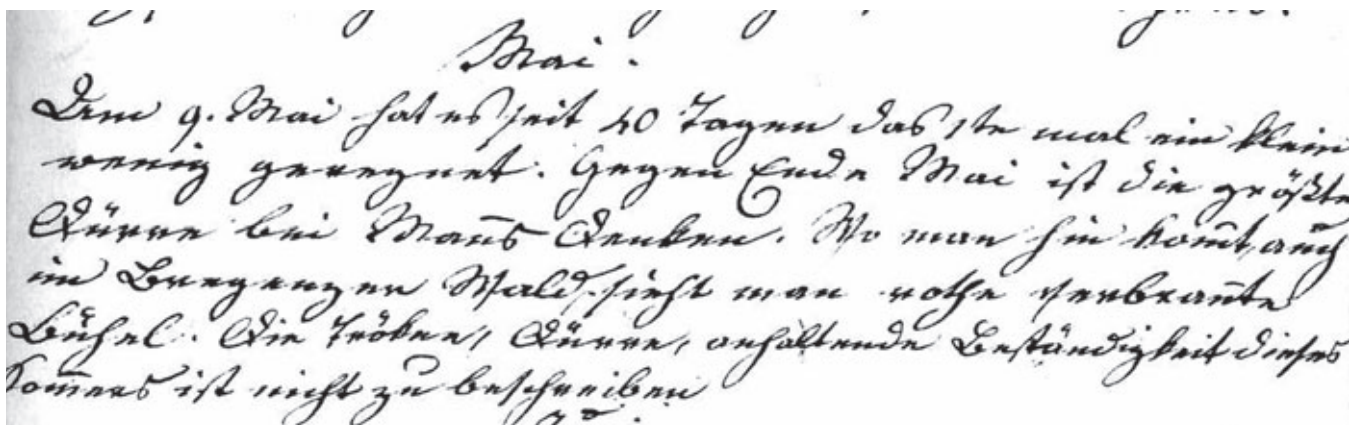 Mai.
Dem 9. Mai hat es seit 40 Tagen das 1te mal ein klein
wenig geregnet. Gegen Ende Mai ist die größte
Dürre bei Mans̄ Denken. Wo man hin kom̄t, auch
im Bregenzer Wald, sieht man rothe verbran̄te
Bühel. Die Tröbne, Dürre, anhaltende Beständigkeit dieses
Som̄ers ist nicht zu beschreiben